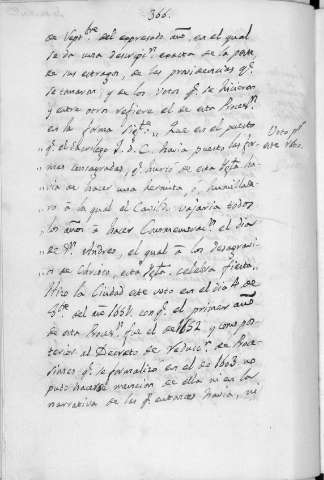 366.
de Septre. del expresado año, en el qual
se da una descripn. exacta de la peste
de sus estragos, de las providencias qe.
se tomaron; y de los votos qe. se hicieron
y entre otros refiere el de esta Procesn.
en la forma sigte.
"qe. el sacrilego J. d. C. havia puesto las for-
"mas consagradas, qe. hurtó de esta Yga. ha-
"via de hacer una hermita, o humillade-
ro á la qual el Cavildo bajaria todos
los años á hacer Conmemoracn. el dia
de Sn. Andres, el qual á los desagravi-
os de Christo, esta Yga. celebra fiesta"
Hizo la Ciudad este voto en el dia 4 de
del año 1651. con qe. el primer año
de esta Procesn. fue el de 1652 y como pos-
terior al Decreto de reduccn. en Proce-
siones qe. se formalizó en el de 1603. no
pudo hacerse mencion de ella ni en la
narrativa de las qe. entonces havia, ni
Voto pr.
este voto.